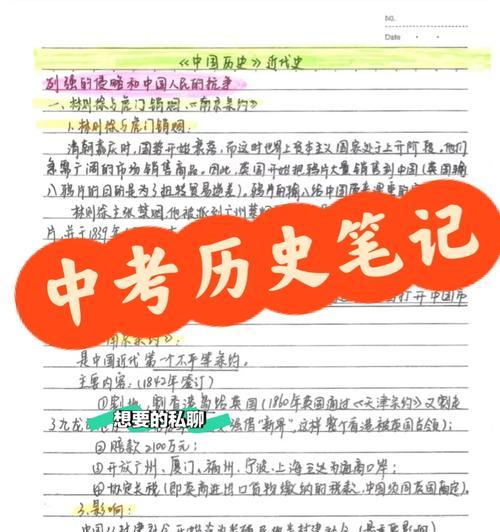 No.
Date
《中国历史》近代史
列强的侵略和中国人民的抗争
一、林则徐与虎门销烟、《南京条约》
1.林则徐与虎门销烟:
清朝嘉庆时,国势开始衰落,而这时世界上资本主义国家处于上升阶段,他们
急需广阔的市场销售商品。因此,英国开始把鸦片大量销售到中国(英国输
入鸦片的目的是为了扭转贸易逆差)。鸦片的输入给中国
林则徐主张禁烟,他被派到广州禁烟
片,并于1839年
中考历史笔记
打开中国市
南京条约》:
是中国近代第一个不平等条约。
主要内容:(1842年签订)
①割地:割香港岛给英国(1860年英国通过《天津条约》又割走
想要的私聊
九龙 强借“新界”,这样整个香港被英国占领);
②赔款2100万元;
③开放广州、厦门、福州、宁波、上海五处为通商口岸;
④协定关税(即英商进出口货物缴纳的税款,中国须同英国商定)。
3.影响: